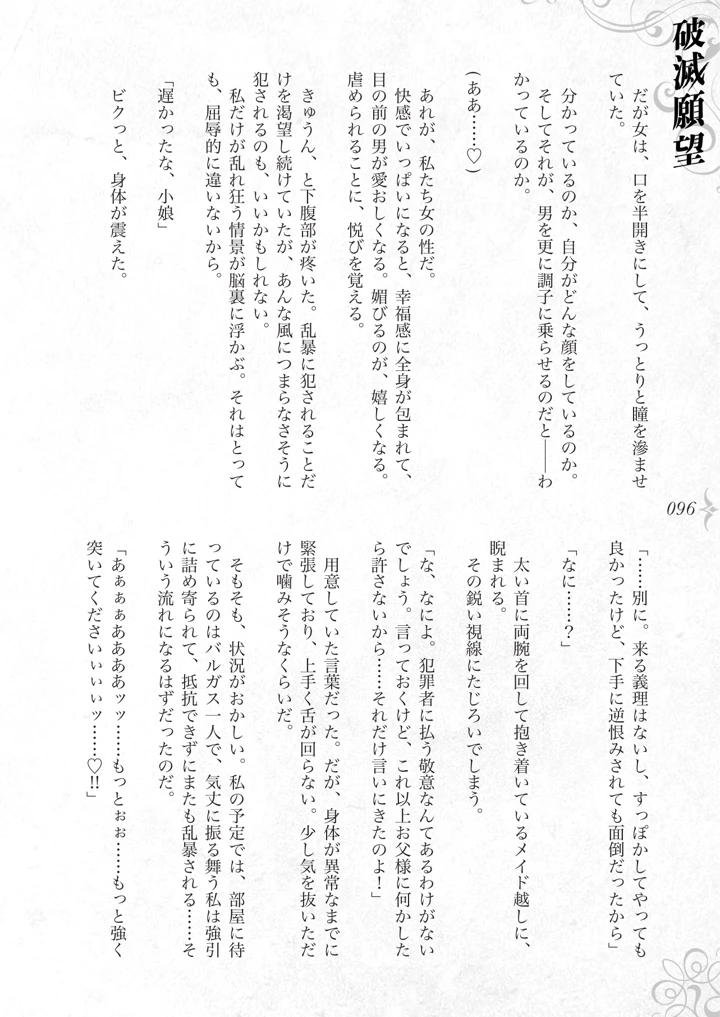 破滅願望
だが女は、口を半開きにして、うっとりと瞳を滲ませ
ていた。
分かっているのか、自分がどんな顔をしているのか。
そしてそれが、男を更に調子に乗らせるのだと――わ
かっているのか。
(ああ……♡)
あれが、私たち女の性だ。
快感でいっぱいになると、幸福感に全身が包まれて、
目の前の男が愛おしくなる。媚びるのが、嬉しくなる。
虐められることに、悦びを覚える。
きゅうん、と下腹部が疼いた。乱暴に犯されることだ
けを渇望し続けていたが、あんな風につまらなさそうに
犯されるのも、いいかもしれない。
私だけが乱れ狂う情景が脳裏に浮かぶ。それはとって
も、屈辱的に違いないから。
「遅かったな、小娘」
ビクっと、身体が震えた。
096
「……別に。来る義理はないし、すっぽかしてやっても
良かったけど、下手に逆恨みされても面倒だったから」
「なに……？」
太い首に両腕を回して抱き着いているメイド越しに、
睨まれる。
その鋭い視線にたじろいでしまう。
「な、なによ。犯罪者に払う敬意なんてあるわけがない
でしょう。言っておくけど、これ以上お父様に何かした
ら許さないから……それだけ言いにきたのよ！」
用意していた言葉だった。だが、身体が異常なまでに
緊張しており、上手く舌が回らない。少し気を抜いただ
けで噛みそうなくらいだ。
そもそも、状況がおかしい。私の予定では、部屋に待
っているのはバルガス一人で、気丈に振る舞う私は強引
に詰め寄られて、抵抗できずにまたも乱暴される……そ
ういう流れになるはずだったのだ。
「あぁぁぁああああッッ……もっとぉぉ……もっと強く
突いてくださいぃぃぃッ……♡!!」